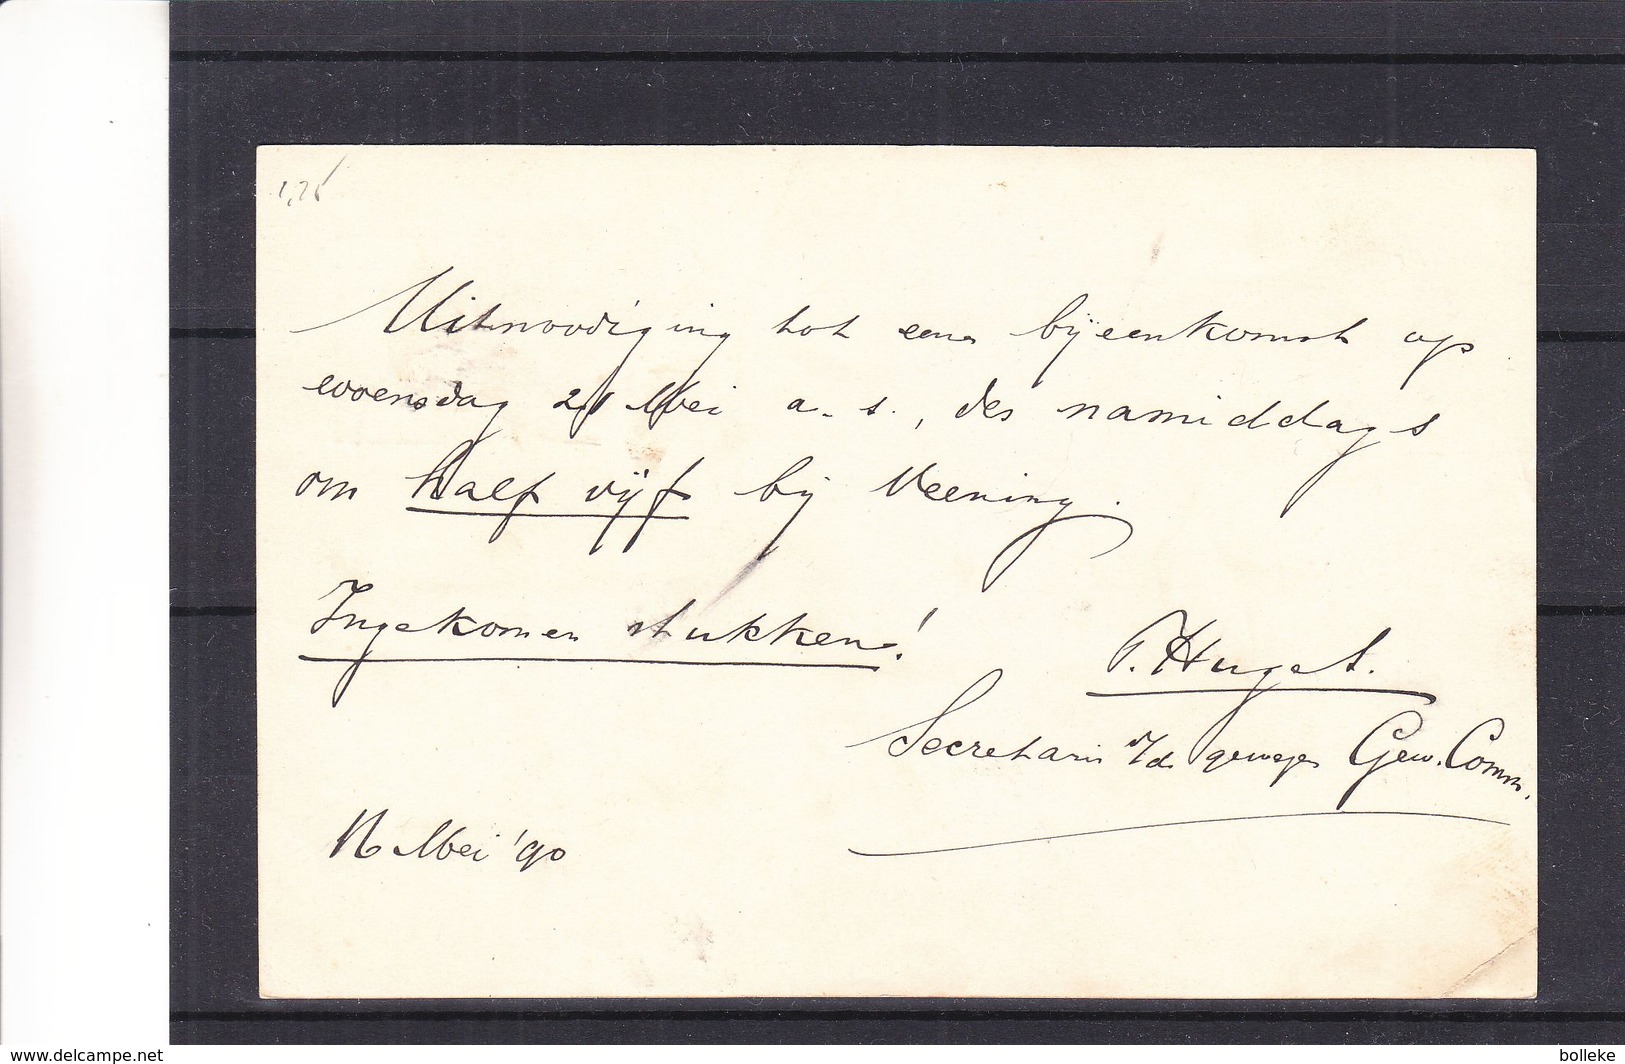 1,25
Uitnoodiging tot eene bijeenkomst op
woensdag 21 Mei a.s., des namiddags
om half vijf bij Veening.
Ingekomen stukken!
P. Huget.
Secretaris v/d Gew. Comm.
16 Mei '90
www.delcampe.net
bolleke